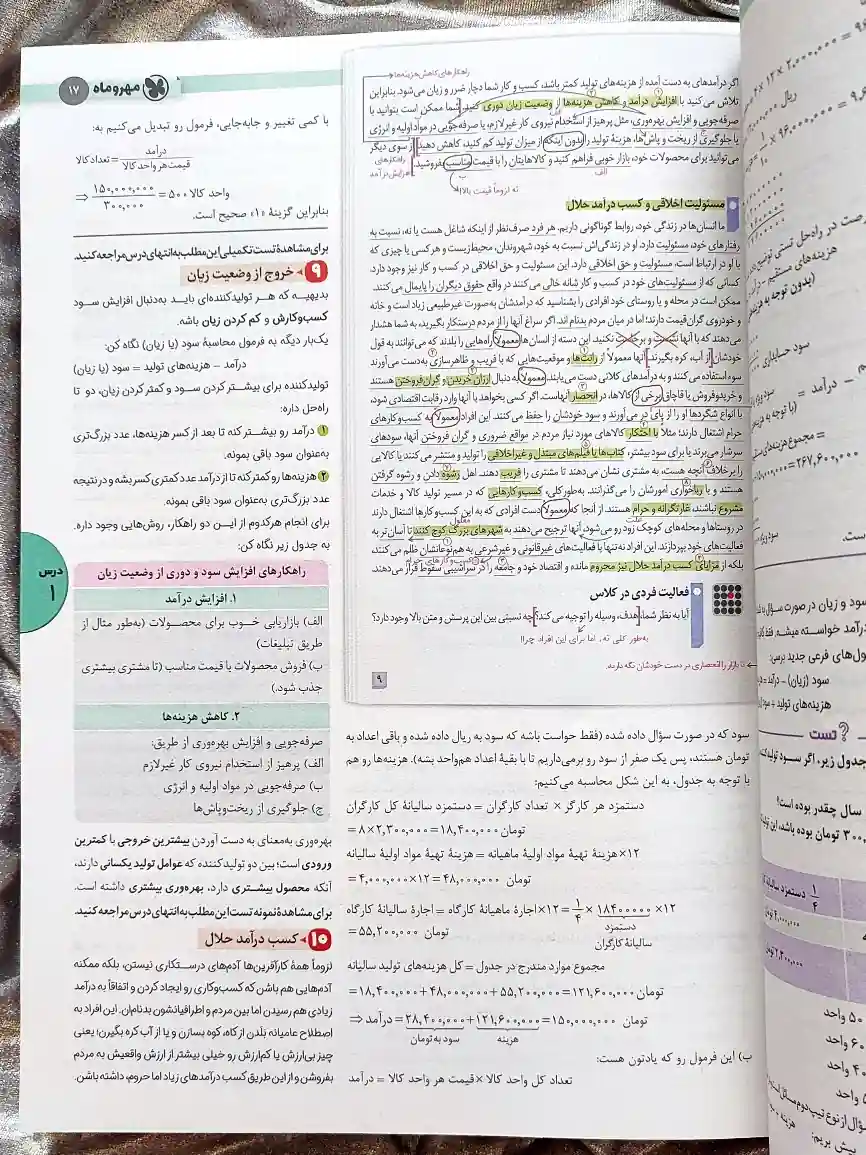 راهکارهای کاهش هزینه‌ها
اگر درآمدهای به دست آمده از هزینه‌های تولید کمتر باشد، کسب و کار شما دچار ضرر و زیان می‌شود. بنابراین
تلاش می‌کنید با افزایش درآمد و کاهش هزینه‌ها از وضعیت زیان دوری کنید. شما ممکن است بتوانید با
صرفه‌جویی و افزایش بهره‌وری، مثل پرهیز از استخدام نیروی کار غیرلازم، یا صرفه‌جویی در مواد اولیه و انرژی
یا جلوگیری از ریخت و پاش‌ها، هزینهٔ تولید را بدون اینکه از میزان تولید کم کنید، کاهش دهید. از سوی دیگر
می‌توانید برای محصولات خود، بازار خوبی فراهم کنید و کالاهایتان را با قیمت مناسب بفروشید.
راهکارهای
افزایش درآمد
الف
ب
نه لزوماً قیمت بالا!
مسئولیت اخلاقی و کسب درآمد حلال
ما انسان‌ها در زندگی خود، روابط گوناگونی داریم. هر فرد صرف‌نظر از اینکه شاغل هست یا نه، نسبت به
رفتارهای خود، مسئولیت دارد. او در زندگی‌اش نسبت به خود، شهروندان، محیط‌زیست و هر کسی یا چیزی که
با او در ارتباط است، مسئولیت و حق اخلاقی دارد. این مسئولیت و حق اخلاقی در کسب و کار نیز وجود دارد.
کسانی که از مسئولیت‌های خود در کسب و کار شانه خالی می‌کنند در واقع حقوق دیگران را پایمال می‌کنند.
ممکن است در محله و یا روستای خود افرادی را بشناسید که درآمدشان به‌صورت غیرطبیعی زیاد است و خانه
و خودروی گران‌قیمت دارند؛ اما در میان مردم بدنام اند. اگر سراغ آنها را از مردم درستکار بگیرید، به شما هشدار
می‌دهند که با آنها نشست و برخاست نکنید. این دسته از انسان‌ها معمولاً راه‌هایی را بلدند که می‌توانند به قول
خودشان از آب، کره بگیرند. آنها معمولاً از رانت‌ها و موقعیت‌هایی که با فریب و ظاهرسازی به‌دست می‌آورند
سوء استفاده می‌کنند و به درآمدهای کلانی دست می‌یابند. معمولاً به دنبال ارزان خریدن و گران‌فروختن هستند
و خریدوفروش یا قاچاق برخی از کالاها، در انحصار آنهاست. اگر کسی بخواهد با آنها وارد رقابت اقتصادی شود،
با انواع شگردها او را از پای در می‌آورند و سود خودشان را حفظ می‌کنند. این افراد معمولاً به کسب‌وکارهای
حرام اشتغال دارند؛ مثلاً با احتکار کالاهای مورد نیاز مردم در مواقع ضروری و گران فروختن آنها، سودهای
سرشار می‌برند یا برای سود بیشتر، کتاب‌ها یا فیلم‌های مبتذل و غیراخلاقی را تولید و منتشر می‌کنند یا کالایی
را برخلاف آنچه هست، به مشتری نشان می‌دهند تا مشتری را فریب دهند. اهل رشوه دادن و رشوه گرفتن
هستند و با رباخواری امورشان را می‌گذرانند. به‌طورکلی، کسب‌وکارهایی که در مسیر تولید کالا و خدمات
مشروع نباشند، غارتگرانه و حرام هستند. از آنجا که معمولاً دست افرادی که به این کسب‌وکارها اشتغال دارند
در روستاها و محله‌های کوچک زود رو می‌شود، آنها ترجیح می‌دهند به شهرهای بزرگ کوچ کنند تا آسان‌تر به
فعالیت‌های خود بپردازند. این افراد نه‌تنها با فعالیت‌های غیرقانونی و غیرشرعی به هم‌نوعانشان ظلم می‌کنند،
بلکه از مزایای کسب درآمد حلال نیز محروم مانده و اقتصاد خود و جامعه را در سراشیبی سقوط قرار می‌دهند.
فعالیت فردی در کلاس
آیا به نظر شما، هدف، وسیله را توجیه می‌کند؟ چه نسبتی بین این پرسش و متن بالا وجود دارد؟
به‌طور کلی نه، اما برای این افراد چرا!
تا بازار را انحصاری در دست خودشان نگه دارند.
۹
سود که در صورت سؤال داده شده (فقط حواست باشه که سود به ریال داده شده و باقی اعداد به
تومان هستند، پس یک صفر از سود رو برمی‌داریم تا با بقیهٔ اعداد هم‌واحد بشه). هزینه‌ها رو هم
با توجه به جدول، به این شکل محاسبه می‌کنیم:
دستمزد هر کارگر × تعداد کارگران = دستمزد سالیانهٔ کل کارگران
= ۸×۲,۳۰۰,۰۰۰=۱۸,۴۰۰,۰۰۰ تومان
۱۲×هزینهٔ تهیهٔ مواد اولیهٔ ماهیانه = هزینهٔ تهیهٔ مواد اولیهٔ سالیانه
= ۴,۰۰۰,۰۰۰×۱۲=۴۸,۰۰۰,۰۰۰ تومان
۱۲×اجارهٔ ماهیانهٔ کارگاه = اجارهٔ سالیانهٔ کارگاه = ۱/۴ × ۱۸۴۰۰۰۰۰ ×۱۲
دستمزد
سالیانهٔ کارگران
= ۵۵,۲۰۰,۰۰۰ تومان
مجموع موارد مندرج در جدول = کل هزینه‌های تولید سالیانه
= ۱۸,۴۰۰,۰۰۰+۴۸,۰۰۰,۰۰۰+۵۵,۲۰۰,۰۰۰=۱۲۱,۶۰۰,۰۰۰ تومان
⇒ درآمد = ۲۸,۴۰۰,۰۰۰+۱۲۱,۶۰۰,۰۰۰=۱۵۰,۰۰۰,۰۰۰ تومان
سود به تومان
هزینه
ب) این فرمول رو که یادتون هست:
تعداد کل واحد کالا × قیمت هر واحد کالا = درآمد
مهروماه
۱۷
با کمی تغییر و جابه‌جایی، فرمول رو تبدیل می‌کنیم به:
درآمد
قیمت هر واحد کالا
= تعداد کالا
⇒ ۱۵۰,۰۰۰,۰۰۰ / ۳۰۰,۰۰۰ = ۵۰۰ واحد کالا
بنابراین گزینهٔ «۱» صحیح است.
برای مشاهدهٔ تست تکمیلی این مطلب به انتهای درس مراجعه کنید.
۹ خروج از وضعیت زیان
بدیهیه که هر تولیدکننده‌ای باید به‌دنبال افزایش سود
کسب‌وکارش و کم کردن زیان باشه.
یک‌بار دیگه به فرمول محاسبهٔ سود (یا زیان) نگاه کن:
درآمد - هزینه‌های تولید = سود (یا زیان)
تولیدکننده برای بیشتر کردن سود و کمتر کردن زیان، دو تا
راه‌حل داره:
۱ درآمد رو بیشتر کنه تا بعد از کسر هزینه‌ها، عدد بزرگ‌تری
به‌عنوان سود باقی بمونه.
۲ هزینه‌ها رو کمتر کنه تا از درآمد عدد کمتری کسر بشه و درنتیجه
عدد بزرگ‌تری به‌عنوان سود باقی بمونه.
برای انجام هرکدوم از این دو راهکار، روش‌هایی وجود داره.
به جدول زیر نگاه کن:
راهکارهای افزایش سود و دوری از وضعیت زیان
۱. افزایش درآمد
الف) بازاریابی خوب برای محصولات (به‌طور مثال از
طریق تبلیغات)
ب) فروش محصولات با قیمت مناسب (تا مشتری بیشتری
جذب شود.)
۲. کاهش هزینه‌ها
صرفه‌جویی و افزایش بهره‌وری از طریق:
الف) پرهیز از استخدام نیروی کار غیرلازم
ب) صرفه‌جویی در مواد اولیه و انرژی
ج) جلوگیری از ریخت‌وپاش‌ها
بهره‌وری به‌معنای به دست آوردن بیشترین خروجی با کمترین
ورودی است؛ بین دو تولیدکننده که عوامل تولید یکسانی دارند،
آنکه محصول بیشتری دارد، بهره‌وری بیشتری داشته است.
برای مشاهدهٔ نمونه تست این مطلب به انتهای درس مراجعه کنید.
۱۰ کسب درآمد حلال
لزوماً همهٔ کارآفرین‌ها آدم‌های درستکاری نیستن، بلکه ممکنه
آدم‌هایی هم باشن که کسب‌وکاری رو ایجاد کردن و اتفاقاً به درآمد
زیادی هم رسیدن اما بین مردم و اطرافیانشون بدنام‌ان. این افراد به
اصطلاح عامیانه بلدن از کاه، کوه بسازن و یا از آب کره بگیرن؛ یعنی
چیز بی‌ارزش یا کم‌ارزش رو خیلی بیشتر از ارزش واقعیش به مردم
بفروشن و از این طریق کسب درآمدهای زیاد اما حروم، داشته باشن.
درس
۱
تست